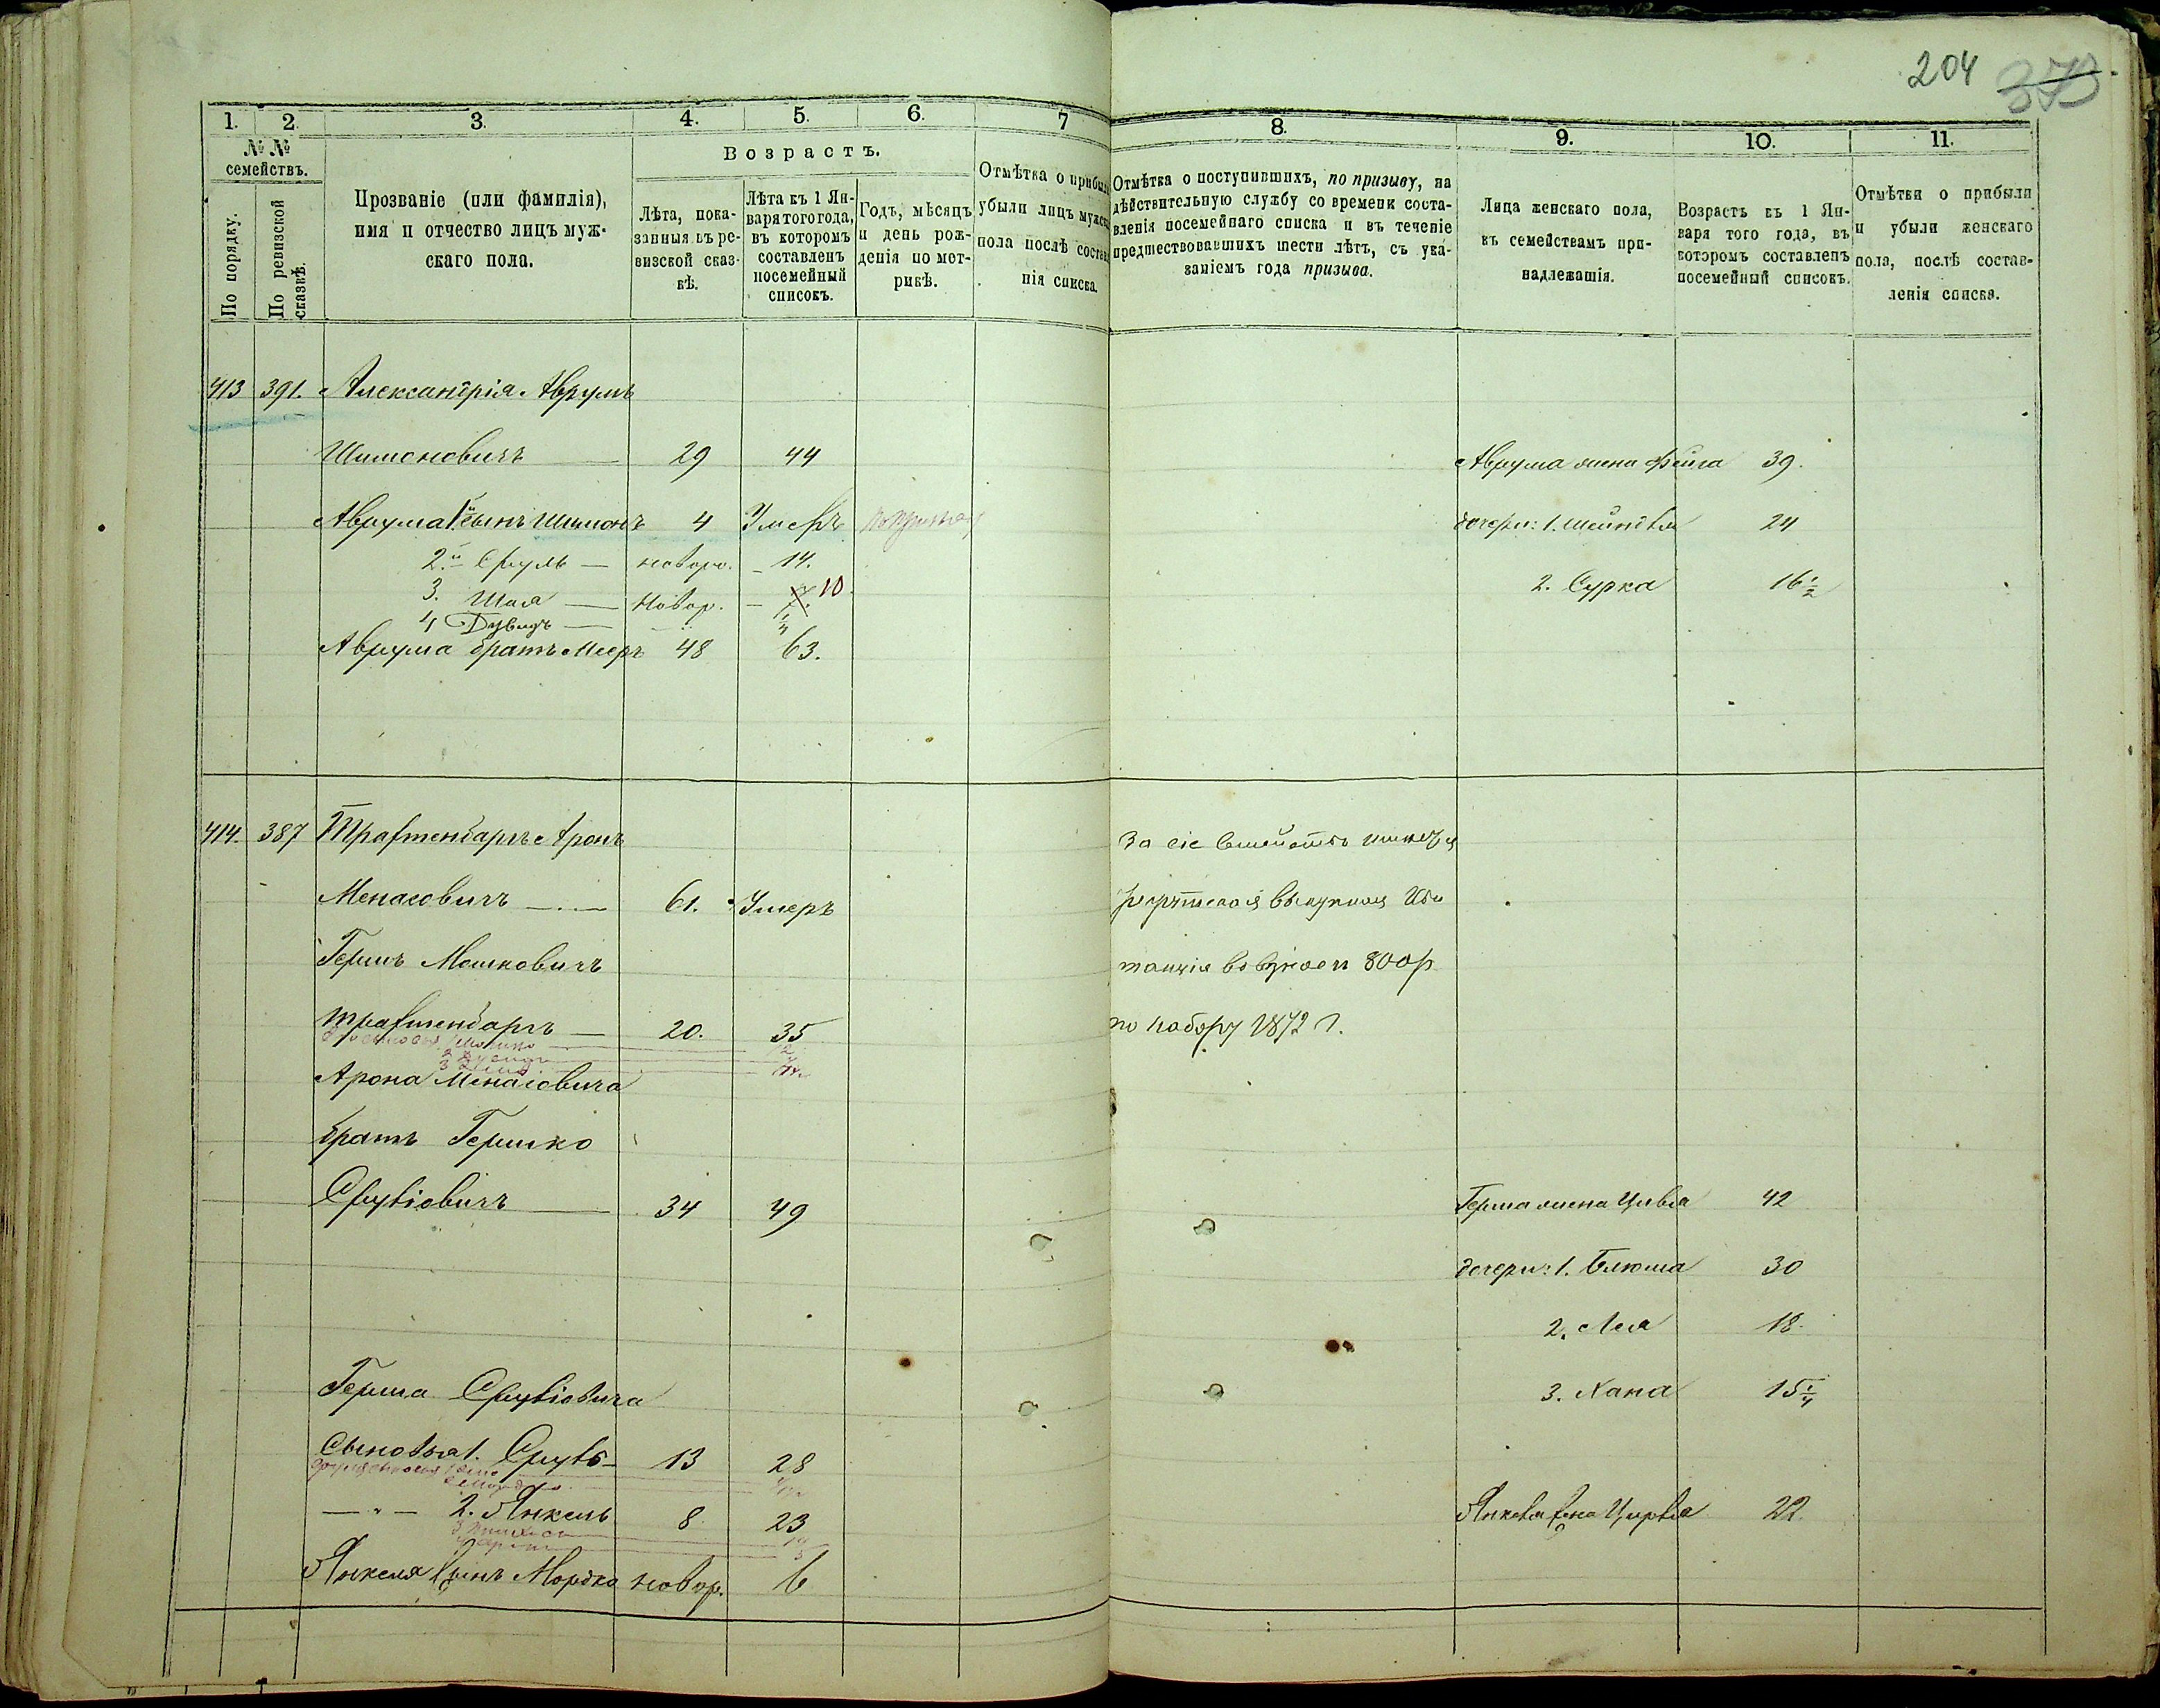 204 373
1. 2. 3. 4. 5. 6. 7 8. 9. 10. 11.
№ №
семействъ.
По порядку.
По ревизской
сказкѣ.
Прозваніе (или фамилія),
имя и отчество лицъ муж-
скаго пола.
Возрастъ.
Лѣта, пока-
занныя въ ре-
визской сказ-
кѣ.
Лѣта къ 1 Ян-
варя того года,
въ которомъ
составленъ
посемейный
списокъ.
Годъ, мѣсяцъ
и день рож-
денія по мет-
рикѣ.
Отмѣтка о прибыли
убыли лицъ мужск
пола послѣ состав
нія списка.
Отмѣтка о поступившихъ, по призыву, на
дѣйствительную службу со времени соста-
вленія посемейнаго списка и въ теченіе
предшествовавшихъ шести лѣтъ, съ ука-
заніемъ года призыва.
Лица женскаго пола,
къ семействамъ при-
надлежащія.
Возрастъ къ 1 Ян-
варя того года, въ
которомъ составленъ
посемейный списокъ.
Отмѣтки о прибыли
и убыли женскаго
пола, послѣ состав-
ленія списка.
413 391. Александрія Аврумъ
Шимоновичъ 29 44 Аврума жена Фейга 39.
Аврума 1й сынъ Шимонъ 4 Умеръ дочери: 1. Шейндля 24
2.й Сруль новоро. 14.
3. Шая Новор. 7. 10. 2. Сурка 16 1/2
4 Дувидъ 1/4
Аврума братъ Мееръ 48 63.
414. 387 Трахтенбаргъ Аронъ За сіе семейство имеется
Менасовичъ 61. Умеръ рекрутская выкупная кви
Гершъ Мошковичъ танція 800 р
Трахтенбаргъ 20. 35 по набору 1872 г.
Арона Менасовича
братъ Гершко
Срулiовичъ 34 49 Герша жена Цивья 42
дочери: 1. Блюма 30
2. Лея 18.
Герша Срулiовича 3. Хана 15 1/4
Сыновья 1. Сруль 13 28
2. Янкель 8 23 Янкеля жена Цирля 22.
Янкеля сынъ Мордко новор. 6